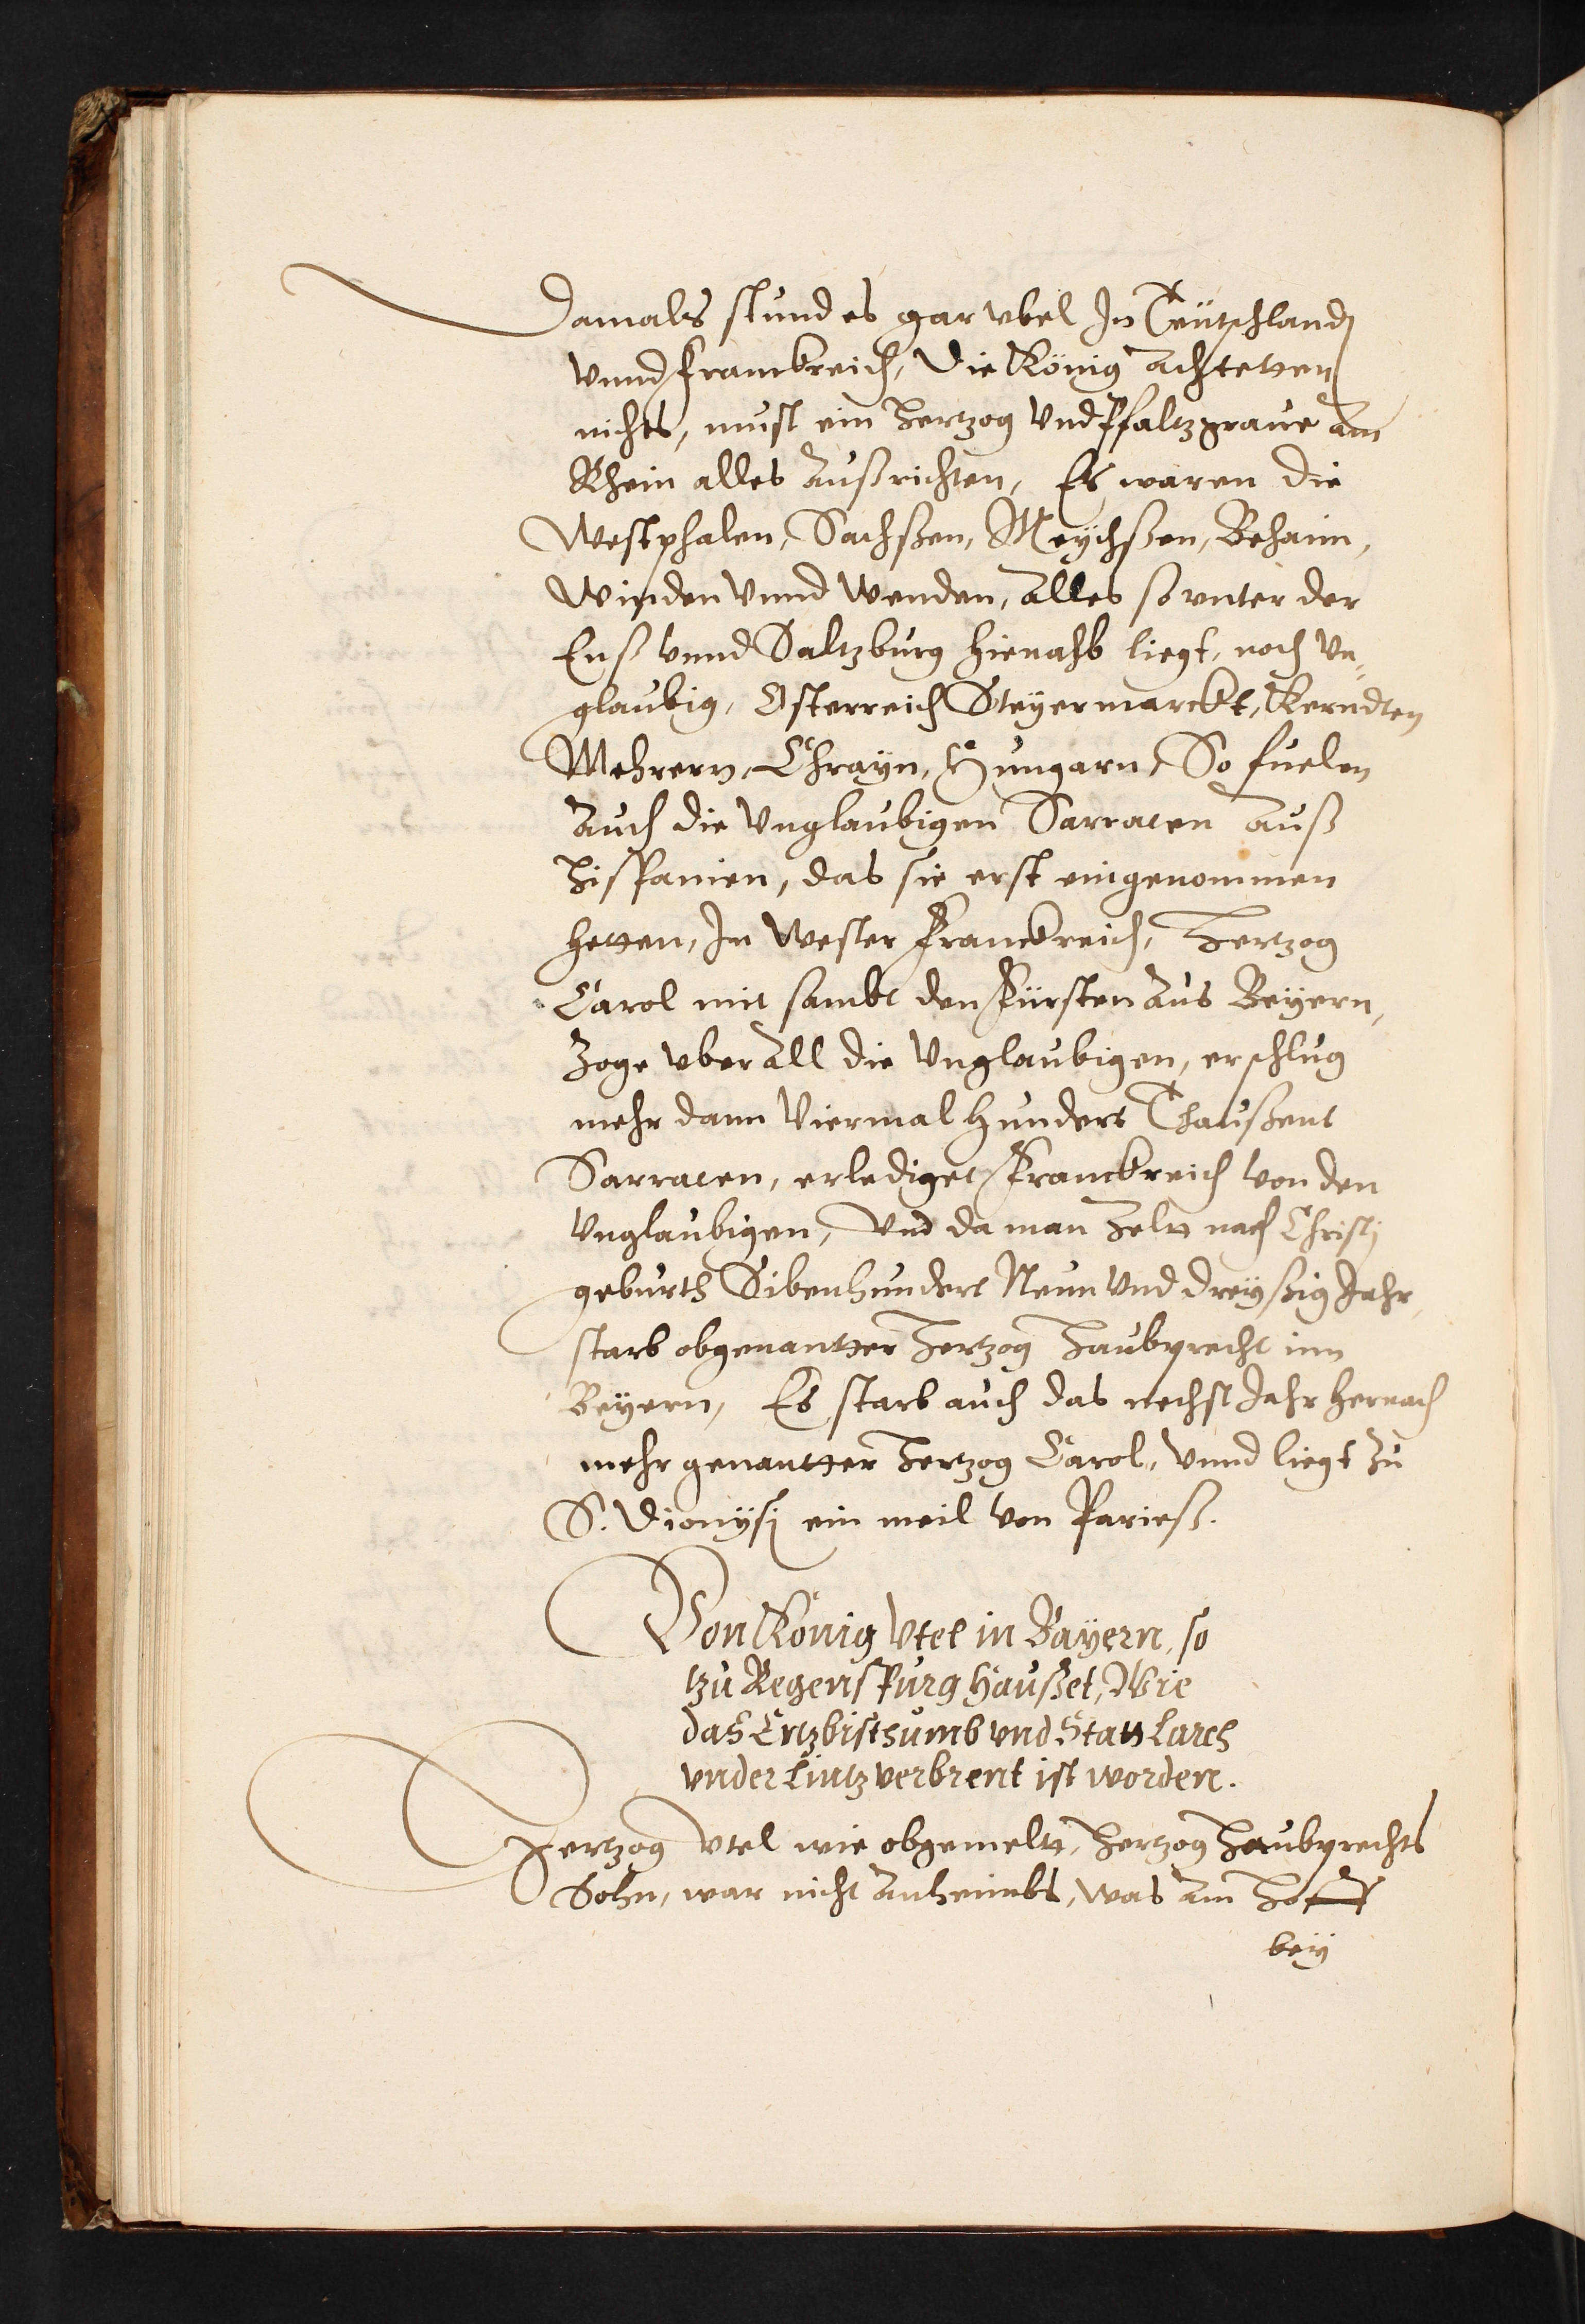 Damals stund es gar vbel In Teütschlandt
vnnd Franckreich, Die König achtetten
nichts, must ein Hertzog Vnd Pfaltzgraue am
Rhein alles außrichten, Es waren die
Westphalen, Sachßen, Meychßen, Behaim,
Winden Vnnd Wenden, alles so vnter der
Enß vnnd Saltzburg hienahb liegt, noch vn-
glaubig, Osterreich Steyermarckt, Kerndten
Mehrern, Chrayn, Hungarn, So fuelen
auch die Vnglaubigen Sarracen auß
Hispanien, das sie erst eingenommen
hetten, In Wester Franckreich, Hertzog
Carol mit sambt den Fürsten aus Beyern,
Zoge vber all die Vnglaubigen, erschlug
mehr dann Viermal hundert Thaußent
Sarracen, erlediget Franckreich von den
Vnglaubigen, Vnd da man Zeltt nach Christj
geburth Sibenhundert Neun Vnd dreyßig Jahr,
starb obgenantter Hertzog Haubprecht inn
Beyern, Es starb auch das nechst Jahr hernach
mehr genantter Hertzog Carol, Vnnd liegt zu
S. Dionysi ein meil von Parieß.
Von König Vtel in Bayern, so
tzu Regenspurg Haußet, Wie
das Ertzbisthumb vnd Statt Larch
vnder Lintz verbrent ist worden.
Hertzog Vtel wie obgemeltt, Hertzog Haubprechts
Sohn, war nicht anheimbs, was am Hoff
bey